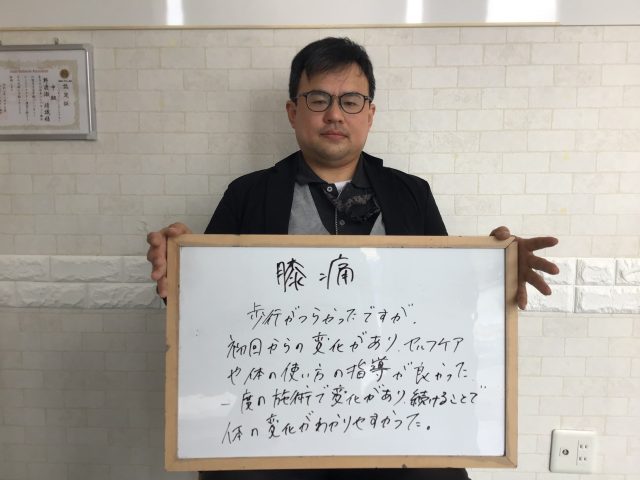 認定証
膝痛
歩行がつらかったですが、
初回からの変化があり、セルフケア
や体の使い方の指導が良かった
一度の施術で変化があり、続けることで
体の変化がわかりやすかった。